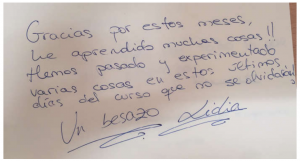 Gracias por estos meses,
he aprendido muchas cosas!!
Hemos pasado y experimentado
varias cosas en estos últimos
días del curso que no se olvidarán!
Un besazo Lidia